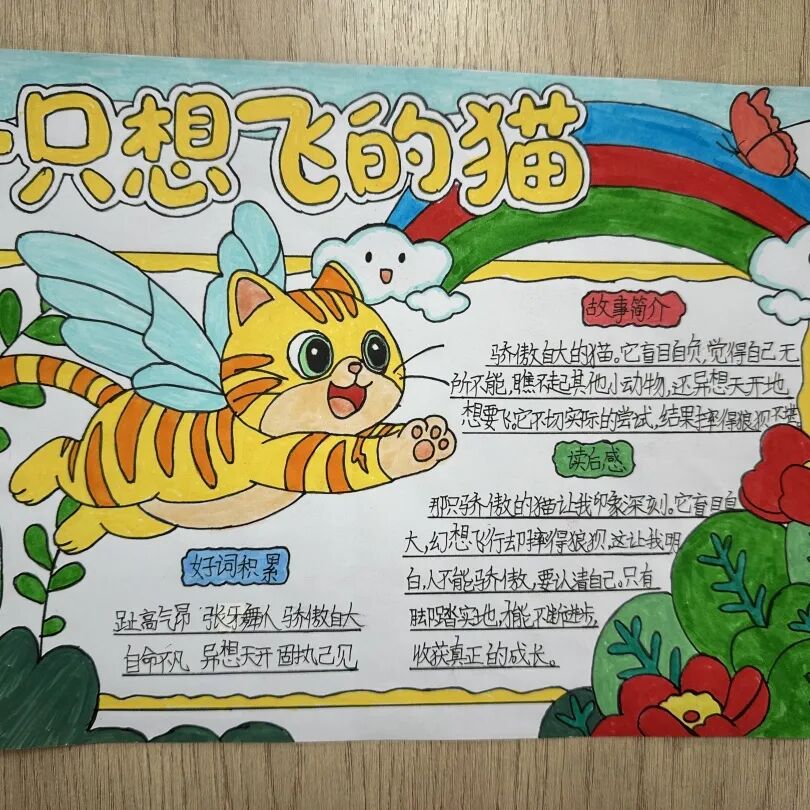 一只想飞的猫
故事简介
骄傲自大的猫。它盲目自负,觉得自己无
所不能,瞧不起其他小动物,还异想天开地
想要飞。它不切实际的尝试,结果摔得狼狈不堪
读后感
那只骄傲的猫让我印象深刻。它盲目自
大,幻想飞行却摔得狼狈,这让我明
白,人不能骄傲,要认清自己,只有
脚踏实地,才能不断进步,
收获真正的成长。
好词积累
趾高气昂 张牙舞人 骄傲自大
自命不凡 异想天开 固执己见